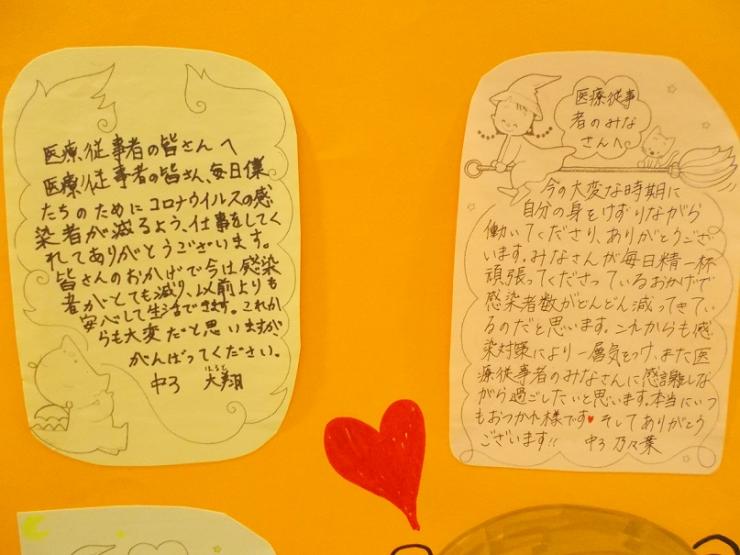 医療従事者の皆さんへ
医療従事者の皆さん、毎日僕
たちのためにコロナウイルスの感
染者が減るよう、仕事をしてく
れてありがとうございます。
皆さんのおかげで今は感染
者がとても減り、以前よりも
安心して生活できます。これか
らも大変だと思いますが、
がんばってください。
中3 大翔
医療従事
者のみな
さんへ
今の大変な時期に
自分の身をけずりながら
働いてくださり、ありがとうござ
います。みなさんが毎日精一杯
頑張ってくださっているおかげで
感染者数がどんどん減ってきてい
るのだと思います。これからも感
染対策により一層気をつけ、また医
療従事者のみなさんに感謝しな
がら過ごしたいと思います。本当にいつ
もおつかれ様です♥ そしてありがとう
ございます!! 中3 乃々葉